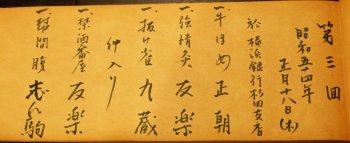 第三回
昭和五十四年
正月十八日(木)
於横浜銀行杉田支店
一、牛ほめ 正朝
一、強情灸 友楽
一、抜け雀 九蔵
仲入り
一、禁酒番屋 友楽
一、幇間腹 志ん駒